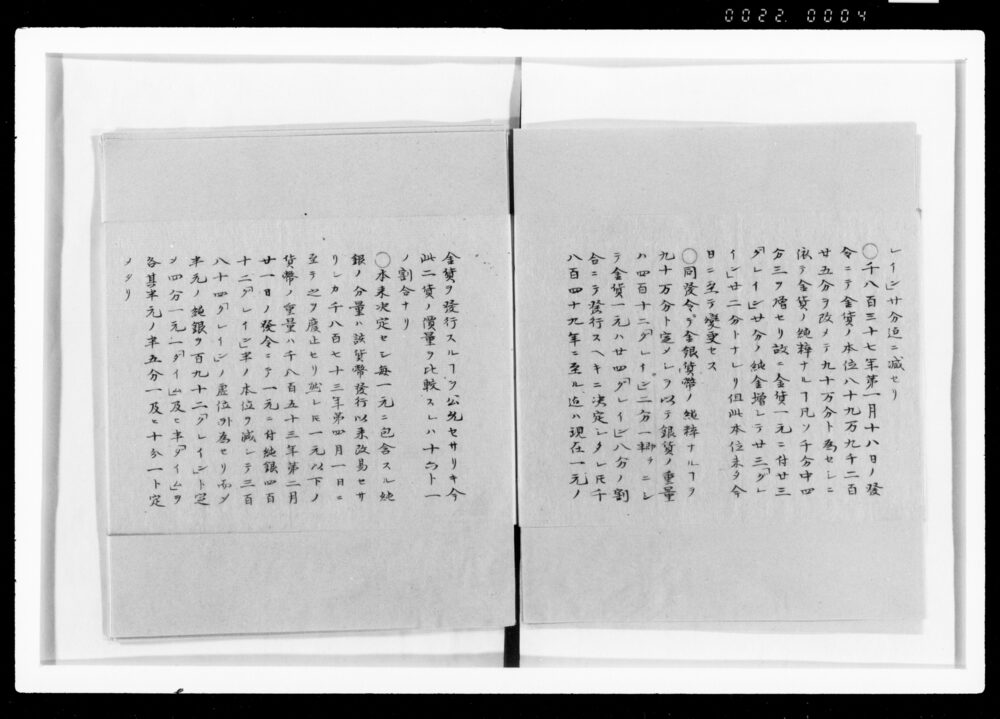 0022. 0004
レイン」廿分迄ニ減セリ
〇千八百三十七年第一月十八日ノ發
令ニテ金貨ノ本位八十九万九千二百
廿五分ヲ改メテ九十万分ト為セシニ
依テ金貨ノ純粹ナルヿ凡ソ千分中四
分三ヲ增セリ故ニ金貨一元ニ付廿三
「ダレイン」廿分ノ純金增シテ廿三「グレ
イン」廿二分トナレリ但此本位未タ今
日ニ至テ變更セス
〇同發令ニテ金銀貨幣ノ純粹ナルヿヲ
九十万分ト定メシヲ以テ銀貨ノ重量
ハ四百十二「グレイン」二分一
テ金貨一元ハ廿四「グレイン」八分ノ割
合ニテ發行スヘキニ決定シタレ𪜈千
八百四十九年ニ至ル迄ハ現在一元ノ
金貨ヲ發行スルヿヲ公允セサリキ今
此二貨ノ價量ヲ比較スレハ十六ト一
ノ割合ナリ
〇本来決定セシ每一元ニ包含スル純
銀ノ分量ハ該貨幣發行以来改易セサ
リシカ千八百七十三年第四月一日ニ
至テ之ヲ廢止セリ然レ𪜈一元以下ノ
貨幣ノ重量ハ千八百五十三年第二月
廿一日ノ發令ニテ一元ニ付純銀四百
十二「グレイン」半ノ本位ヲ減シテ三百
八十四「グレイン」ノ虛位ト為セリ而メ
半元ノ純銀ヲ百九十二「グレイン」ト定
メ四分一元一「ダイム」及ヒ半「ダイム」ヲ
各其半元ノ半五分一及ヒ十分一ト定
メタリ